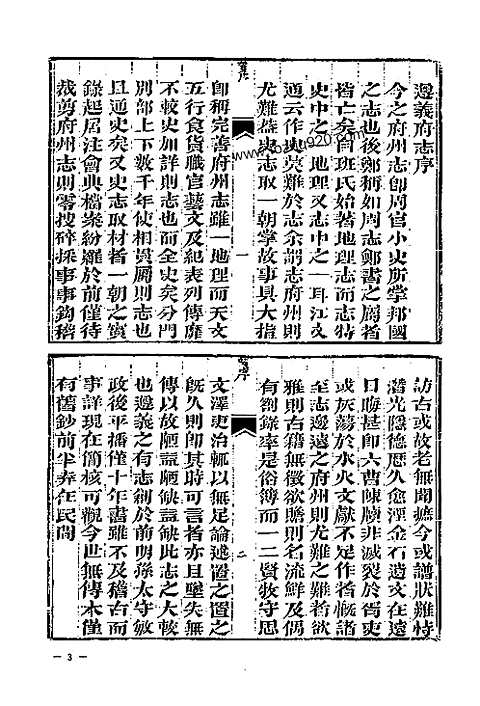 遵義府志序
今之府州志卽周官小史所掌邦國
之志也後鄭稱如周志鄭書之屬者
皆亡矣而班氏始著地理志而志特
史中之一地理又志中之一耳江文
通云作史莫難於志余謂志府州則
尤難蓋史志取一朝掌故事具大指
卽稱完善府州志雖一地理而天文
五行食貨職官藝文及紀表列傳靡
不較史加詳則志也而全史矣分門
別部上下數千年使相貫屬則志也
且通史矣又史志取材者一朝之實
錄起居注會典檔案紛羅於前僅待
裁剪府州志則零搜碎採事事鉤稽
訪古或故老無聞攟今或譜狀難恃
潛光隱德歷久愈湮金石遺文在遠
日晦甚卽六曹陳牘非滅裂於胥吏
或灰蕩於水火文獻不足作者慨諸
至志邊遠之府州則尤難之難若欲
雅則古籍無徵欲贍則名流鮮及偶
有劄錄率是俗簿而一二賢牧守思
文澤吏治輒以無足論述置之置之
旣久則卽其時可言者亦且墜失無
傳以故陋益陋缺益缺此志之大較
也遵義之有志創於前明孫太守敏
政後平播僅十年書雖不及稽古而
事詳現在簡核可觀今世無傳本僅
有舊鈔前半弆在民間
序
一
序
二
— 3 —